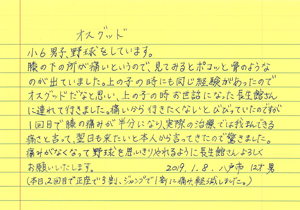 オスグッド
小6男子、野球をしています。
膝の下の所が痛いというので、見てみるとポコッと骨のようなものが出ていました。上の子の時にも同じ経験があったので
オスグッドだなと思い、上の子の時お世話になった長生館さん
に連れて行きました。痛いから行きたくないとびびっていたのですが
1回目で膝の痛みが半分になり、実際の治療では我まんできる
痛さと言って、翌日も来たいと本人から言ってきたので驚きました。
痛みがなくなって野球を思いきりやれるように長生館さんよろしく
お願いいたします。 2019.1.8. 八戸市 12才 男
(本日、2回目で正座で3割、ジャンプで1割に痛み軽減しました。)